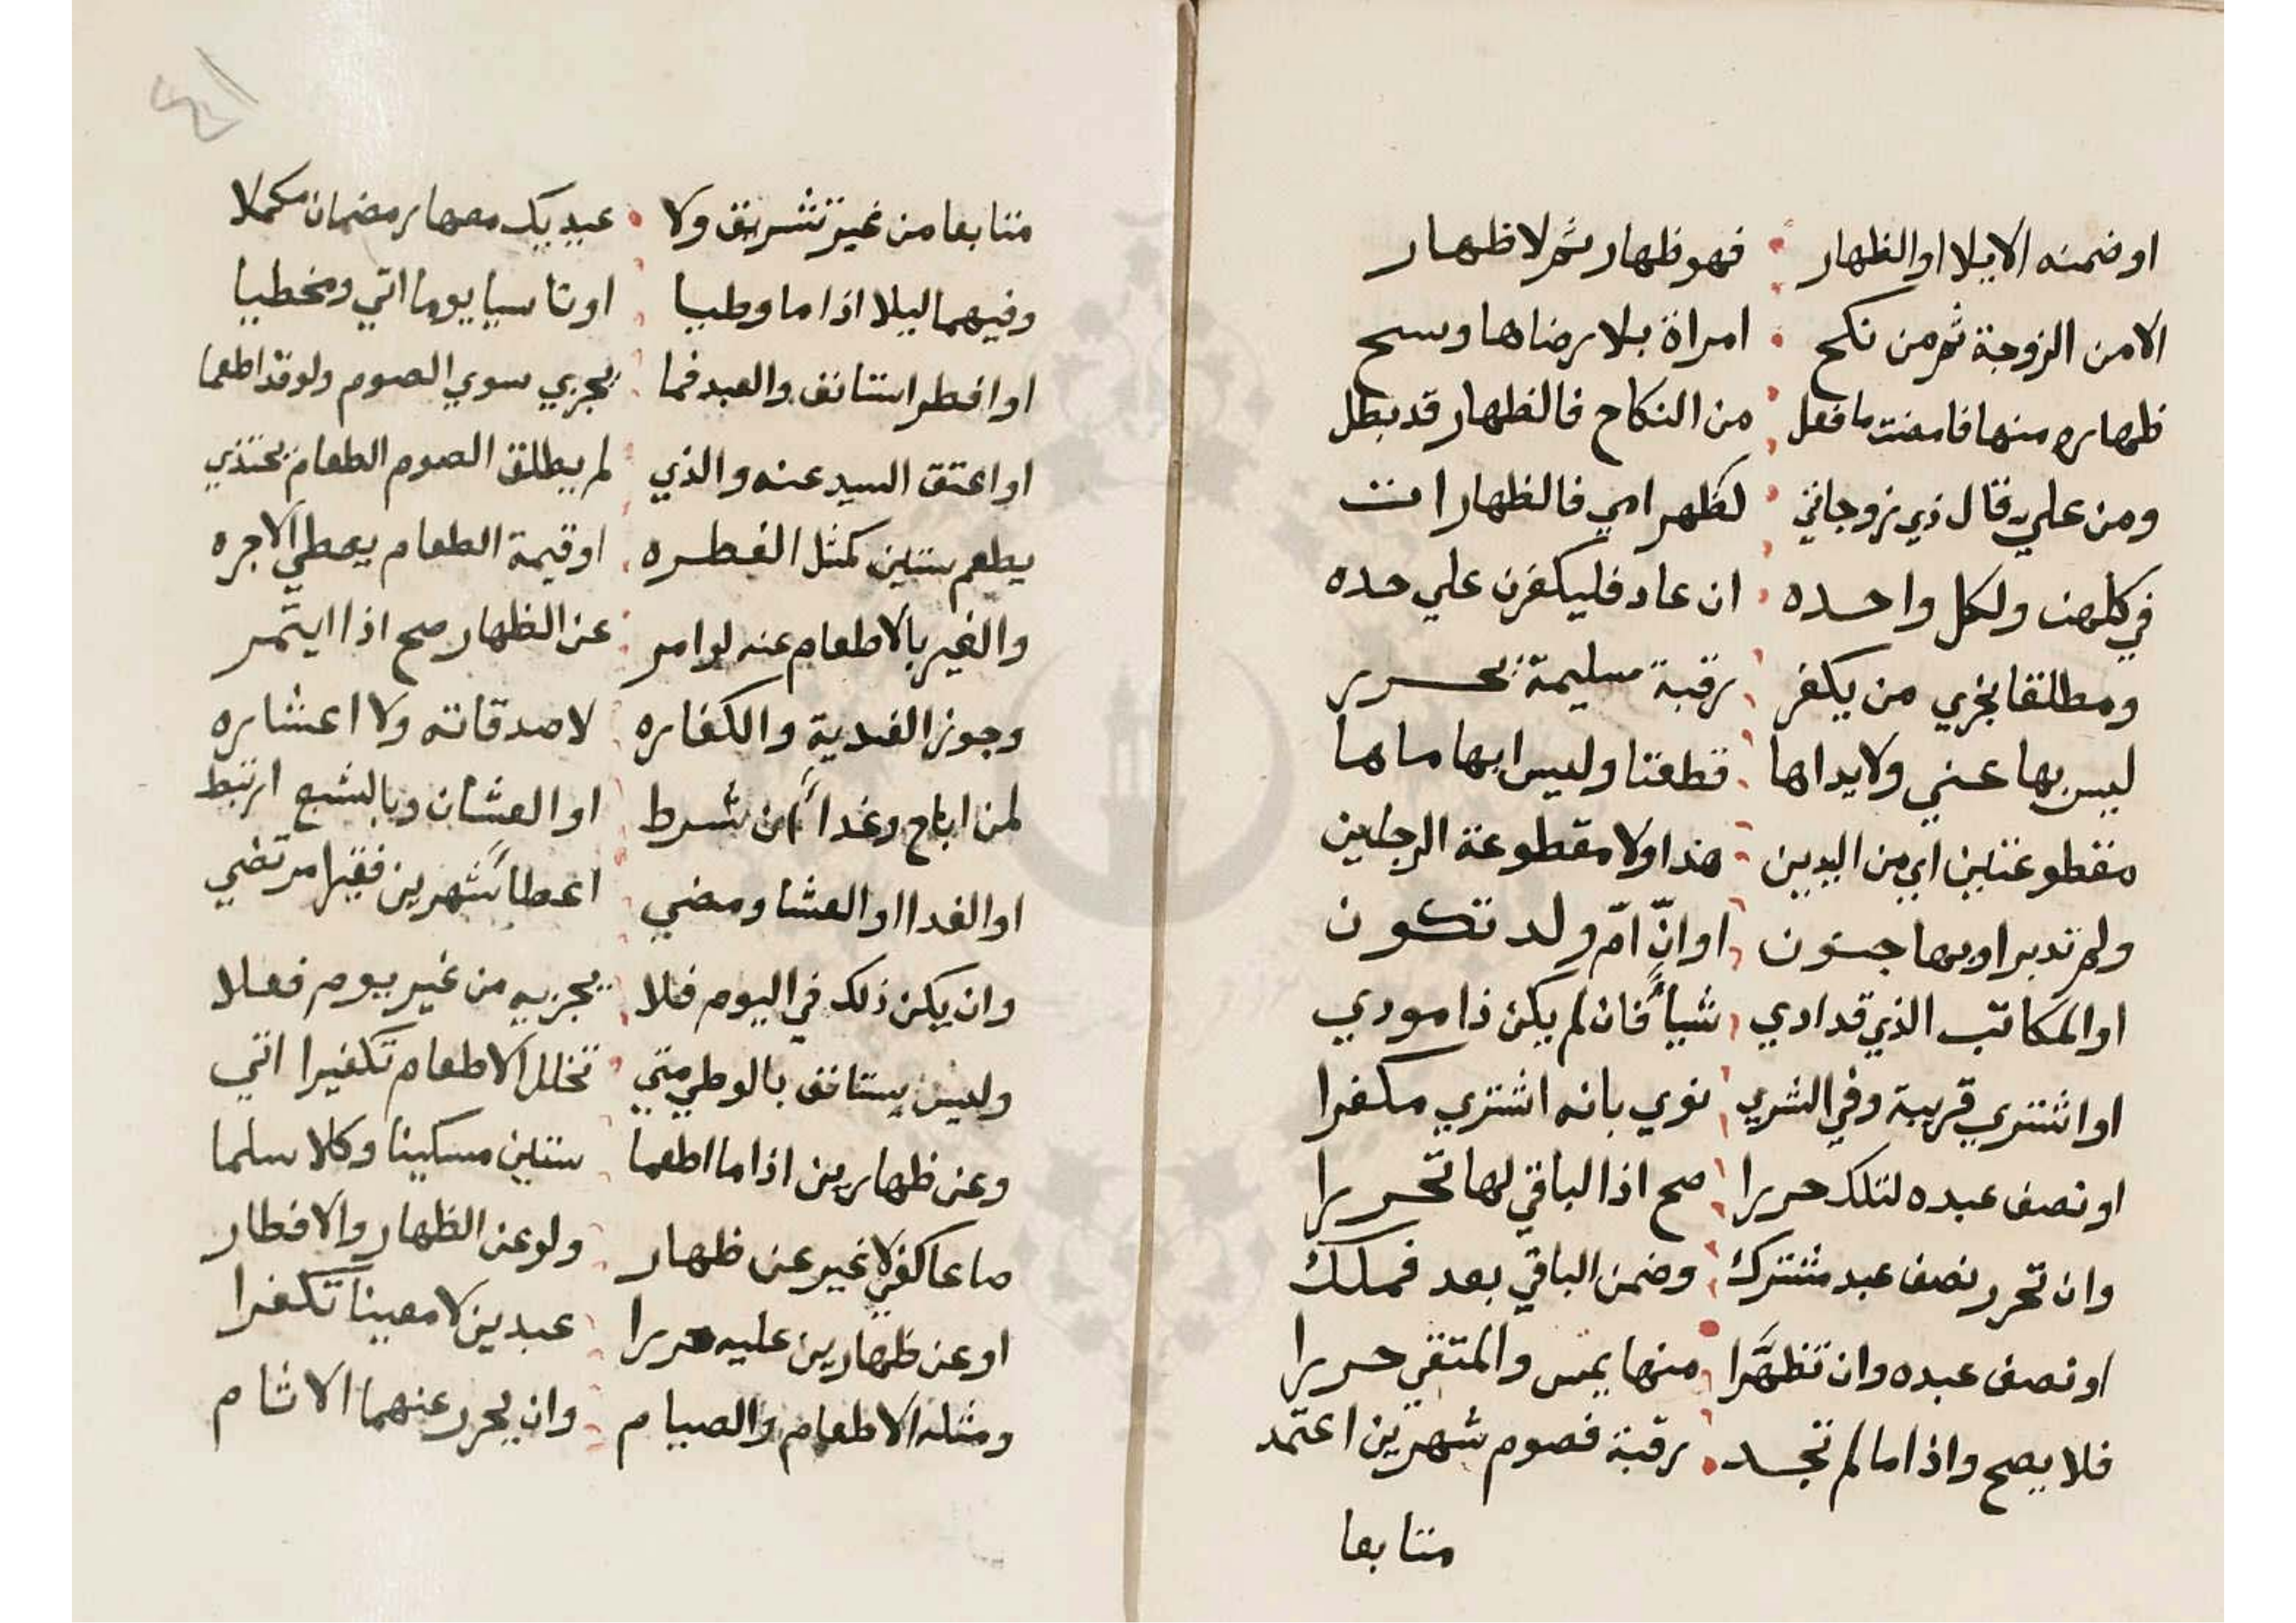 اوضمنه الايلا اوالظهار • فهو ظهار ثم لا ظهار
الامن الزوجة ثم من نكح • امراة بلا رضاها وسح
ظهاره منها فامضت ما فعل • من النكاح فالظهار قد بطل
ومن علي قال ذي زوجاتي • كظهر امي فالظهار ات
في كلهن ولكل واحده • ان عاد فليكفرن علي حده
ومطلقا يجزي من يكفر رقبة سليمة يحرر
ليس بها عمي ولا يداها قطعتا وليس ابهاماها
مقطوعتين اي من اليدين هذا ولا مقطوعة الرجلين
ولم تدبر او بها جنون او انّ امّ ولد تكون
او المكاتب الذي قد ادي شيأً فان لم يكن ذا مودي
او اشتري قريبة وفي الشري نوي بانه اشتري مكفرا
او نصف عبده لتلك حررا صح اذا الباقي لها تحررا
وان تحرر نصف عبد مشترك وضمن الباقي بعد فملك
او نصف عبده وان تظهَّرا منها يمس والمتقي حررا
فلا يصح واذا ما لم تجد • رقبة فصوم شهرين اعتمد
متتابعا
٤١
متتابعا من غير تشريق ولا • عيد يك معها رمضان مكملا
وفيهما ليلا اذا ما وطيا او ناسيا يوما اتي ومخطيا
او افطر استانف والعبد فما يجزي سوي الصوم ولو قد اطعما
او اعتق السيد عنه والذي لم يطلق الصوم الطعام يحتذي
يطعم ستين كمثل الفطره او قيمة الطعام يعطي الاجره
والغير بالاطعام عنه لو امر عن الظهار صح اذا ايتمر
وجوز الفدية والكفاره لا صدقاته ولا اعشاره
لمن اباح وغدأان شرط او العشان وبالشبع ارتبط
او الغدا او العشا ومضي اعطأ شهرين فقيرا مرتضي
وان يكن ذلك في اليوم فلا يجزيه من غير يوم فعلا
وليس يستانف بالوطي متي تخلل الاطعام تكفيرا اتي
وعن ظهارين اذا ما اطعما ستين مسكينا وكلا سلما
صاعا كفي لا غير عن ظهار ولو عن الظهار والافطار
او عن ظهارين عليه حررا عبدين لا معينا تكفرا
ومثله الاطعام والصيام وان يحرر عنهما الاثام